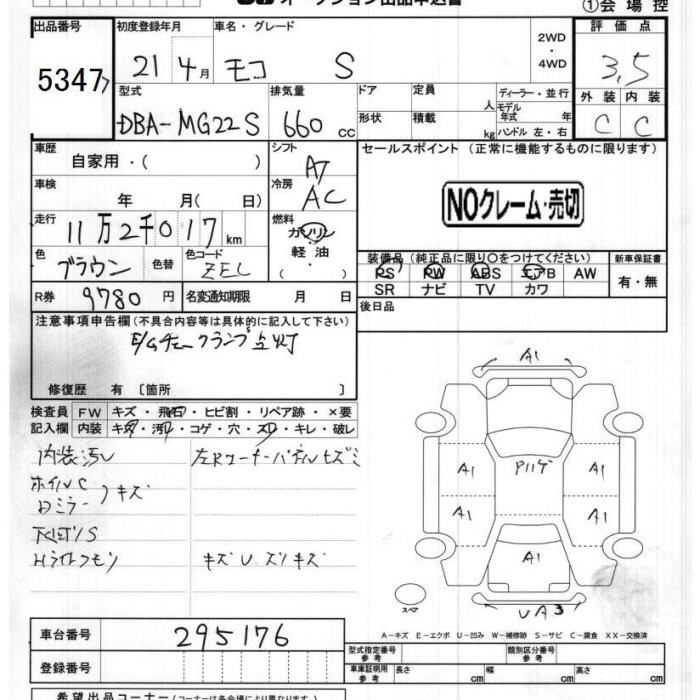 ①会場控
出品番号 初度登録年月 車名・グレード 評価点
5347 21年4月 モコ S 2WD・4WD 3,5
型式 排気量 ドア 定員 人 ディーラー・並行 外装 内装
DBA-MG22S 660 cc 形状 積載 kg モデル年式 年 ハンドル 左・右 C C
車歴 自家用・( ) シフト AT セールスポイント (正常に機能するものに限ります)
車検 年 月( 日) 冷房 AC NOクレーム・売切
走行 11万2千017km 燃料 ガソリン・軽油・( )
色 ブラウン 色替 色コード ZEL 装備品 (純正品に限り○をつけてください) 新車保証書
PS PW ABS エアB AW 有・無
SR ナビ TV カワ
R券 9780円 名変通知期限 月 日 後日品
注意事項申告欄 (不具合内容等は具体的に記入して下さい)
E/Gチェックランプ点灯
修復歴 有 〔箇所 〕
検査員 FW キズ・飛石・ヒビ割・リペア跡・×要
記入欄 内装 キズ・汚レ・コゲ・穴・スレ・キレ・破レ
内装汚レ
ホイルC
ドミラー キズ
下回りS
Hライトクモリ キズU ズリキズ
A1
A1 アルハゲ A1
A1 A1
A1
スペア UA3
A-キズ E-エクボ U-凹み W-補修跡 S-サビ C-腐食 XX-交換済
車台番号 295176 型式指定番号 参考 類別区分番号 参考
登録番号 車庫証明用 参考 長さ cm 幅 cm 高さ cm
希望出品コーナー (コーナーは各会場により異なります)